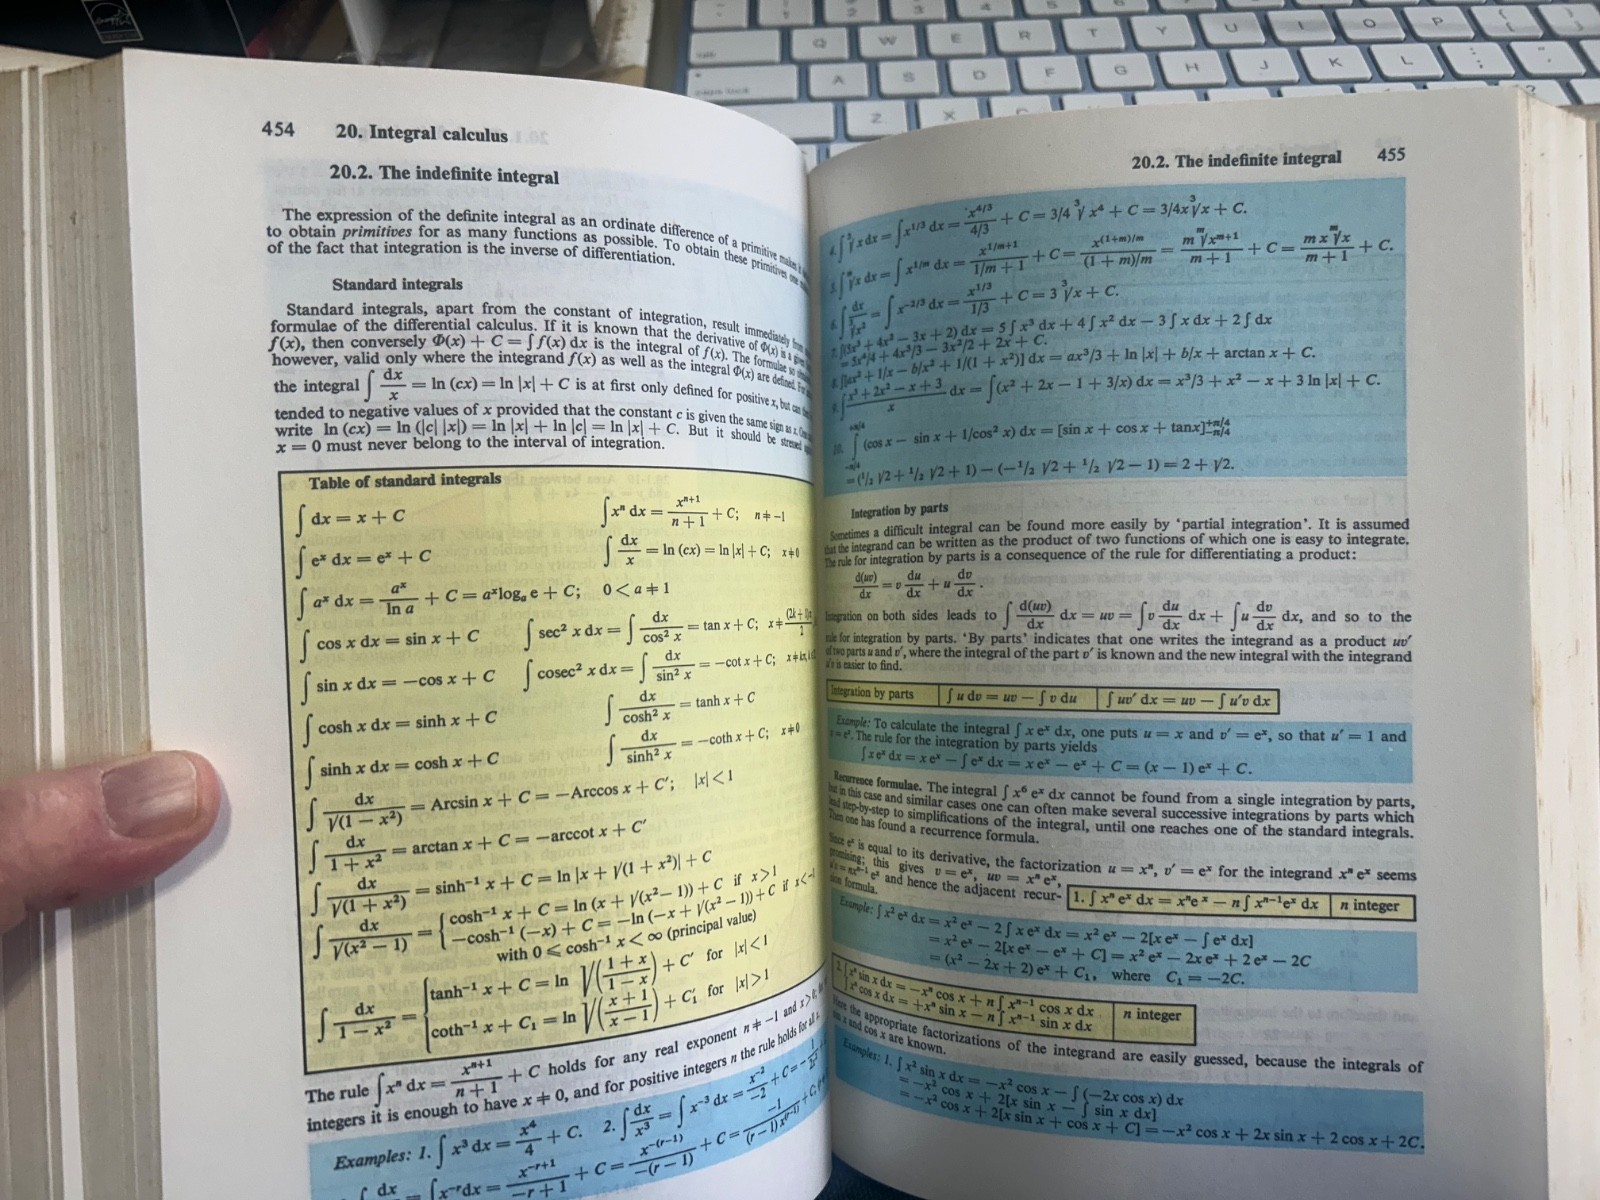 454 20. Integral calculus
20.2. The indefinite integral
The expression of the definite integral as an ordinate difference of a primitive makes it
to obtain primitives for as many functions as possible. To obtain these primitives one
of the fact that integration is the inverse of differentiation.
Standard integrals
Standard integrals, apart from the constant of integration, result immediately from
formulae of the differential calculus. If it is known that the derivative of Φ(x) is a
f(x), then conversely Φ(x) + C = ∫ f(x) dx is the integral of f(x). The formulae so
however, valid only where the integrand f(x) as well as the integral Φ(x) are defined.
the integral ∫ dx/x = ln (cx) = ln |x| + C is at first only defined for positive x, but can
tended to negative values of x provided that the constant c is given the same sign as x.
write ln (cx) = ln (|c| |x|) = ln |x| + ln |c| = ln |x| + C. But it should be stressed
x = 0 must never belong to the interval of integration.
Table of standard integrals
∫ dx = x + C ∫ xⁿ dx = xⁿ⁺¹/(n + 1) + C; n ≠ −1
∫ eˣ dx = eˣ + C ∫ dx/x = ln (cx) = ln |x| + C; x ≠ 0
∫ aˣ dx = aˣ/ln a + C = aˣ logₐ e + C; 0 < a ≠ 1
∫ cos x dx = sin x + C ∫ sec² x dx = ∫ dx/cos² x = tan x + C; x ≠
∫ sin x dx = −cos x + C ∫ cosec² x dx = ∫ dx/sin² x = −cot x + C;
∫ cosh x dx = sinh x + C ∫ dx/cosh² x = tanh x + C
∫ sinh x dx = cosh x + C ∫ dx/sinh² x = −coth x + C; x ≠ 0
∫ dx/√(1 − x²) = Arcsin x + C = −Arccos x + C′; |x| < 1
∫ dx/(1 + x²) = arctan x + C = −arccot x + C′
∫ dx/√(1 + x²) = sinh⁻¹ x + C = ln |x + √(1 + x²)| + C
∫ dx/√(x² − 1) = { cosh⁻¹ x + C = ln (x + √(x² − 1)) + C if x > 1
−cosh⁻¹ (−x) + C = −ln (−x + √(x² − 1)) + C if x < −1
with 0 ⩽ cosh⁻¹ x < ∞ (principal value)
∫ dx/(1 − x²) = { tanh⁻¹ x + C = ln √((1 + x)/(1 − x)) + C′ for |x| < 1
coth⁻¹ x + C₁ = ln √((x + 1)/(x − 1)) + C₁′ for |x| > 1
The rule ∫ xⁿ dx = xⁿ⁺¹/(n + 1) + C holds for any real exponent n ≠ −1 and x > 0;
integers it is enough to have x ≠ 0, and for positive integers n the rule holds for all x.
Examples: 1. ∫ x³ dx = x⁴/4 + C. 2. ∫ dx/x³ = ∫ x⁻³ dx = x⁻²/−2 + C = −
∫ dx = ∫ x⁻ʳ dx = x⁻ʳ⁺¹/(−r + 1) + C = x⁻⁽ʳ⁻¹⁾/−(r − 1) + C = −1/((r − 1) x⁽ʳ⁻¹⁾) + C,
20.2. The indefinite integral 455
4. ∫ ∛x dx = ∫ x^(1/3) dx = x^(4/3)/(4/3) + C = 3/4 ∛x⁴ + C = 3/4x ∛x + C.
5. ∫ ᵐ√x dx = ∫ x^(1/m) dx = x^(1/m+1)/(1/m + 1) + C = x^((1+m)/m)/((1 + m)/m) = m ᵐ√xᵐ⁺¹/(m + 1) + C = m x ᵐ√x/(m + 1) + C.
6. ∫ dx/∛x² = ∫ x^(−2/3) dx = x^(1/3)/(1/3) + C = 3 ∛x + C.
7. ∫(5x³ + 4x² − 3x + 2) dx = 5 ∫ x³ dx + 4 ∫ x² dx − 3 ∫ x dx + 2 ∫ dx
= 5x⁴/4 + 4x³/3 − 3x²/2 + 2x + C.
8. ∫[ax² + 1/x − b/x² + 1/(1 + x²)] dx = ax³/3 + ln |x| + b/x + arctan x + C.
9. ∫ (x³ + 2x² − x + 3)/x dx = ∫(x² + 2x − 1 + 3/x) dx = x³/3 + x² − x + 3 ln |x| + C.
10. ∫ from −π/4 to +π/4 (cos x − sin x + 1/cos² x) dx = [sin x + cos x + tanx] from −π/4 to +π/4
= (¹/₂ √2 + ¹/₂ √2 + 1) − (−¹/₂ √2 + ¹/₂ √2 − 1) = 2 + √2.
Integration by parts
Sometimes a difficult integral can be found more easily by ‘partial integration’. It is assumed
that the integrand can be written as the product of two functions of which one is easy to integrate.
The rule for integration by parts is a consequence of the rule for differentiating a product:
d(uv)/dx = v du/dx + u dv/dx.
Integration on both sides leads to ∫ d(uv)/dx dx = uv = ∫ v du/dx dx + ∫ u dv/dx dx, and so to the
rule for integration by parts. ‘By parts’ indicates that one writes the integrand as a product uv′
of two parts u and v′, where the integral of the part v′ is known and the new integral with the integrand
u′v is easier to find.
Integration by parts ∫ u dv = uv − ∫ v du ∫ uv′ dx = uv − ∫ u′v dx
Example: To calculate the integral ∫ x eˣ dx, one puts u = x and v′ = eˣ, so that u′ = 1 and
v = eˣ. The rule for the integration by parts yields
∫ x eˣ dx = x eˣ − ∫ eˣ dx = x eˣ − eˣ + C = (x − 1) eˣ + C.
Recurrence formulae. The integral ∫ x⁶ eˣ dx cannot be found from a single integration by parts,
but in this case and similar cases one can often make several successive integrations by parts which
lead step-by-step to simplifications of the integral, until one reaches one of the standard integrals.
Then one has found a recurrence formula.
Since eˣ is equal to its derivative, the factorization u = xⁿ, v′ = eˣ for the integrand xⁿ eˣ seems
promising; this gives v = eˣ, uv = xⁿ eˣ,
u′v = nxⁿ⁻¹ eˣ and hence the adjacent recur-
sion formula.
1. ∫ xⁿ eˣ dx = xⁿeˣ − n ∫ xⁿ⁻¹eˣ dx n integer
Example: ∫ x² eˣ dx = x² eˣ − 2 ∫ x eˣ dx = x² eˣ − 2[x eˣ − ∫ eˣ dx]
= x² eˣ − 2[x eˣ − eˣ + C] = x² eˣ − 2x eˣ + 2 eˣ − 2C
= (x² − 2x + 2) eˣ + C₁, where C₁ = −2C.
2. ∫ xⁿ sin x dx = −xⁿ cos x + n ∫ xⁿ⁻¹ cos x dx
∫ xⁿ cos x dx = +xⁿ sin x − n ∫ xⁿ⁻¹ sin x dx n integer
Here the appropriate factorizations of the integrand are easily guessed, because the integrals of
sin x and cos x are known.
Examples: 1. ∫ x² sin x dx = −x² cos x − ∫ (−2x cos x) dx
= −x² cos x + 2[x sin x − ∫ sin x dx]
= −x² cos x + 2[x sin x + cos x + C] = −x² cos x + 2x sin x + 2 cos x + 2C.